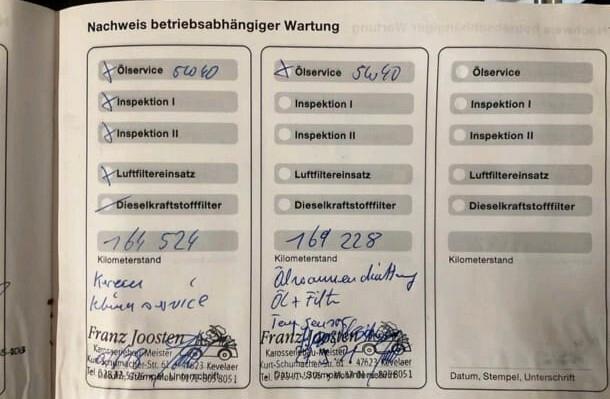 Nachweis betriebsabhängiger Wartung
Ölservice 5W40
Inspektion I
Inspektion II
Luftfiltereinsatz
Dieselkraftstofffilter
164 524
Kilometerstand
service
Franz Joosten
Karosseriebau-Meister
Kurt-Schumacher-Str. 61 · 47623 Kevelaer
Ölservice 5W40
Inspektion I
Inspektion II
Luftfiltereinsatz
Dieselkraftstofffilter
169 228
Kilometerstand
Ölwannendichtung
Öl + Filter
Temp sensor
Franz Joosten
Karosseriebau-Meister
Kurt-Schumacher-Str. 61 · 47623 Kevelaer
Ölservice
Inspektion I
Inspektion II
Luftfiltereinsatz
Dieselkraftstofffilter
Kilometerstand
Datum, Stempel, Unterschrift